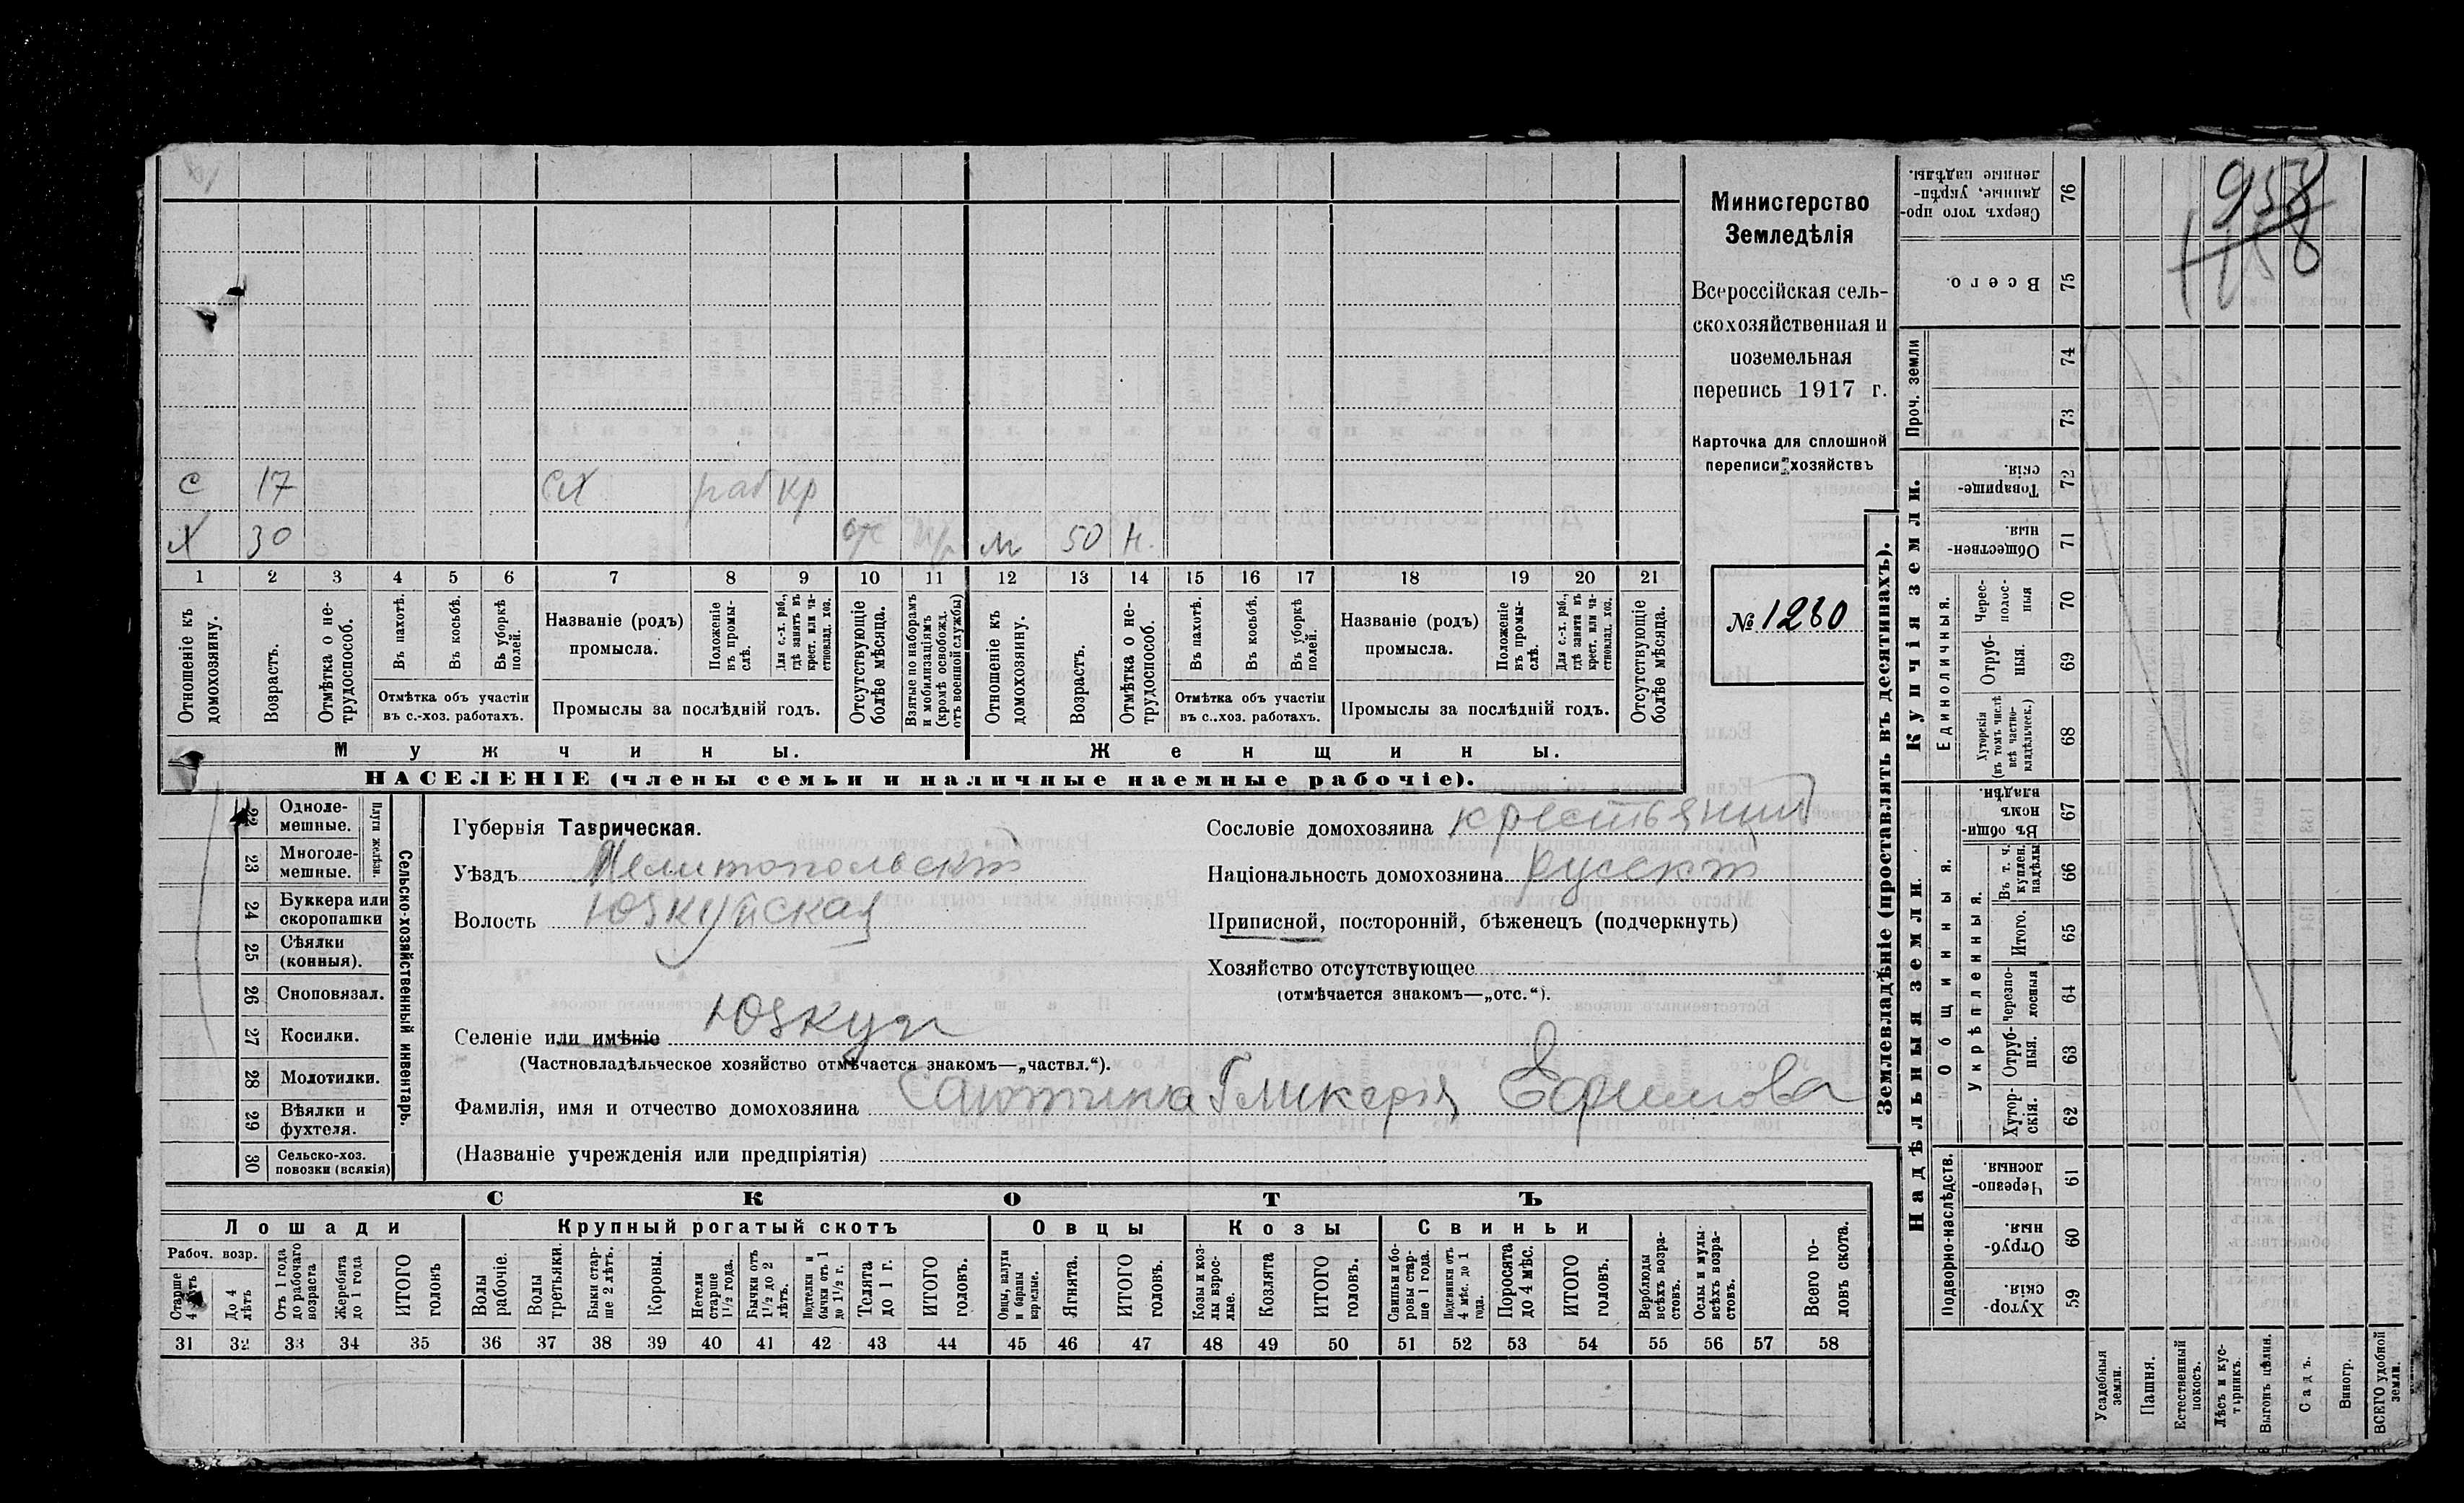 958
1158
с 17 сх раб кр
х 30 отс м 50 н.
1 2 3 4 5 6 7 8 9 10 11 12 13 14 15 16 17 18 19 20 21
Отношеніе къ домохозяину.
Возрастъ.
Отмѣтка о нетрудоспособ.
Въ пахотѣ.
Въ косьбѣ.
Въ уборкѣ полей.
Отмѣтка объ участіи въ с.-хоз. работахъ.
Названіе (родъ) промысла.
Положеніе въ промыслѣ.
Для с.-х. раб., гдѣ занятъ въ крест. или частновлад. хоз.
Промыслы за послѣдній годъ.
Отсутствующіе болѣе мѣсяца.
Взятые по наборамъ и мобилизаціямъ (кромѣ освобожд. отъ военной службы)
Отношеніе къ домохозяину.
Возрастъ.
Отмѣтка о нетрудоспособ.
Въ пахотѣ.
Въ косьбѣ.
Въ уборкѣ полей.
Отмѣтка объ участіи въ с..хоз. работахъ.
Названіе (родъ) промысла.
Положеніе въ промыслѣ.
Для с.-х. раб., гдѣ занята въ крест. или частновлад. хоз.
Промыслы за послѣдній годъ.
Отсутствующіе болѣе мѣсяца.
Мужчины. Женщины.
НАСЕЛЕНІЕ (члены семьи и наличные наемные рабочіе).
Министерство
Земледѣлія
Всероссійская сель-
скохозяйственная и
поземельная
перепись 1917 г.
Карточка для сплошной
переписи хозяйствъ
№ 1280
Губернія Таврическая.
Уѣздъ Мелитопольскій
Волость Юзкуйская
Селеніе или имѣніе Юзкуи
(Частновладѣльческое хозяйство отмѣчается знакомъ—„частвл.“).
Фамилія, имя и отчество домохозяина Саютина Гликерія Ефимова
(Названіе учрежденія или предпріятія)
Сословіе домохозяина крестьянинъ
Національность домохозяина русскій
Приписной, посторонній, бѣженецъ (подчеркнуть)
Хозяйство отсутствующее
(отмѣчается знакомъ—„отс.“).
Сельско-хозяйственный инвентарь.
Плуги желѣзн.
22 Однолемешные.
23 Многолемешные.
24 Буккера или скоропашки
25 Сѣялки (конныя).
26 Сноповязал.
27 Косилки.
28 Молотилки.
29 Вѣялки и фухтеля.
30 Сельско-хоз. повозки (всякія)
СКОТЪ
Лошади Крупный рогатый скотъ Овцы Козы Свиньи
Рабоч. возр.
Старше 4 лѣтъ
До 4 лѣтъ
Отъ 1 года до рабочаго возраста
Жеребята до 1 года
ИТОГО головъ
Волы рабочіе.
Волы третьяки.
Быки старше 2 лѣтъ.
Коровы.
Нетели старше 1½ года.
Бычки отъ 1½ до 2 лѣтъ.
Подтелки и бычки отъ 1 до 1½ г.
Телята до 1 г.
ИТОГО головъ.
Овцы, валухи и бараны взрослые.
Ягнята.
ИТОГО головъ.
Козы и козлы взрослые.
Козлята
ИТОГО головъ.
Свиньи и боровы старше 1 года.
Подсвинки отъ 4 мѣс. до 1 года.
Поросята до 4 мѣс.
ИТОГО головъ.
Верблюды всѣхъ возрастовъ.
Ослы и мулы всѣхъ возрастовъ.
Всего головъ скота.
31 32 33 34 35 36 37 38 39 40 41 42 43 44 45 46 47 48 49 50 51 52 53 54 55 56 57 58
Землевладѣніе (проставлять въ десятинахъ).
Купчія земли.
Надѣльныя земли.
Сверхъ того проданные, укрѣпленные надѣлы. 76
Всего. 75
Проч. земли
74
73
Товарищескія. 72
Общественныя 71
Единоличныя.
Чересполосныя 70
Отрубныя. 69
Хуторскія (въ томъ числѣ всѣ частновладѣльческ.) 68
Общинныя.
Въ общиномъ владѣн. 67
Укрѣпленныя.
Въ т. ч. куплен. надѣлы 66
Итого. 65
Черезполосныя 64
Отрубныя. 63
Хуторскія. 62
Подворно-наслѣдств.
Черезполосныя. 61
Отрубныя. 60
Хуторскія. 59
Усадебныя земли.
Пашня.
Естественный покосъ.
Лѣсъ и кустарникъ.
Выгонъ цѣлин.
Садъ.
Виногр.
ВСЕГО удобной земли.